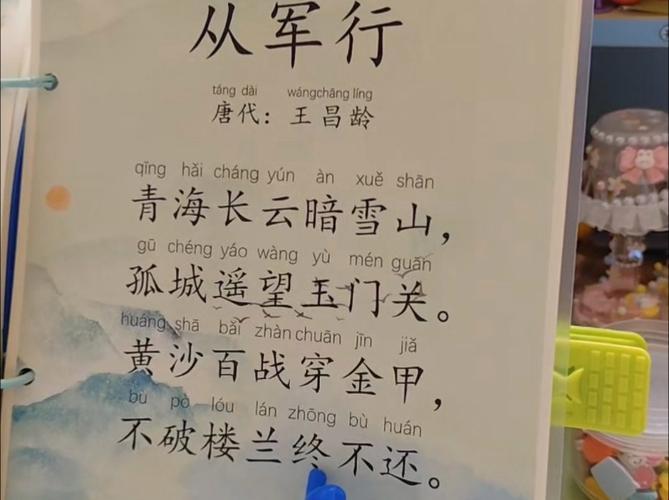 从军行
táng dài wángchāng líng
唐代：王昌龄
qīng hǎi cháng yún àn xuě shān
青海长云暗雪山，
gū chéng yáo wàng yù mén guān
孤城遥望玉门关。
huáng shā bǎi zhàn chuān jīn jiǎ
黄沙百战穿金甲，
bù pò lóu lán zhōng bù huán
不破楼兰终不还。